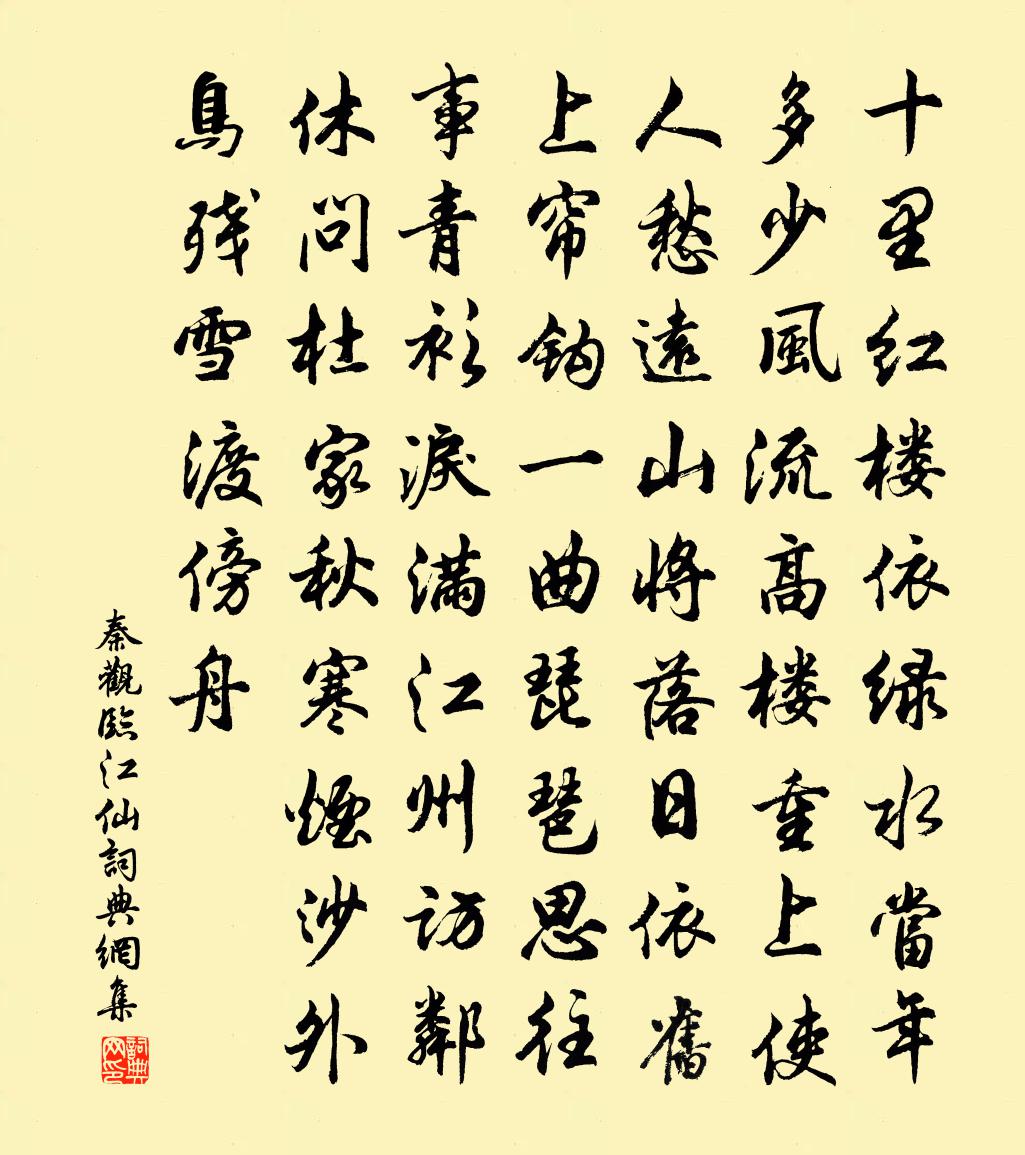 十里红楼依绿水當年
多少風流高楼重上使
人愁遠山將落日依舊
上帘鈎一曲琵琶思往
事青衫淚满江州访鄰
休问杜家秋寒煙沙外
鳥残雪渡傍舟
秦觀臨江仙詞典網集
詞典网印